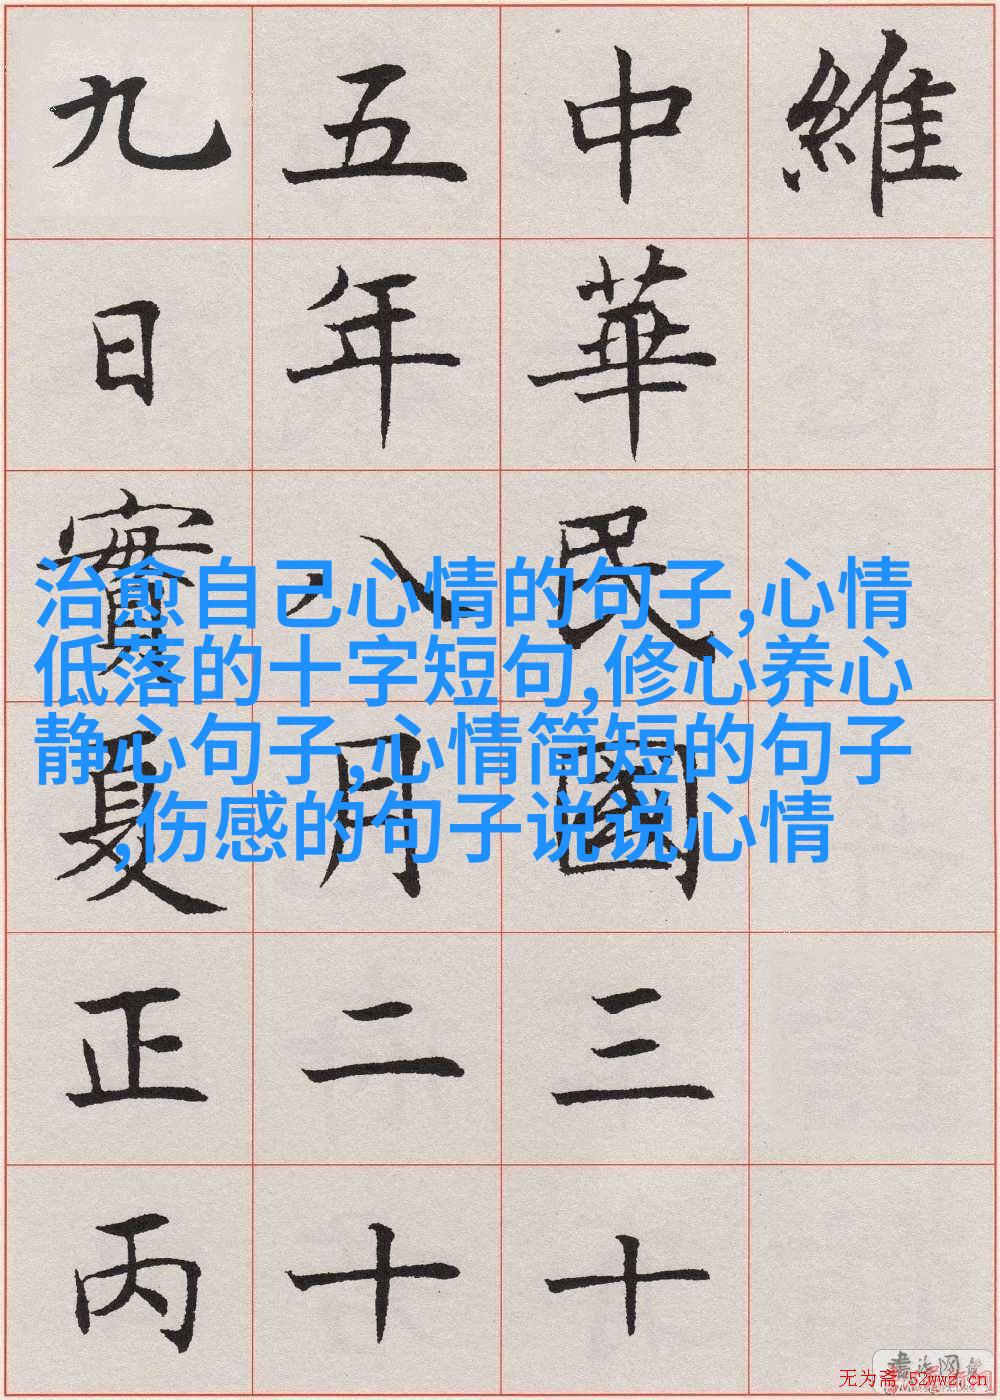 維
中華民國三十
五年八月二十
九日實夏正丙
治愈自己心情的句子,心情
低落的十字短句,修心养心
静心句子,心情简短的句子
,伤感的句子说说心情
书法网
无为斋 52wwz.cn